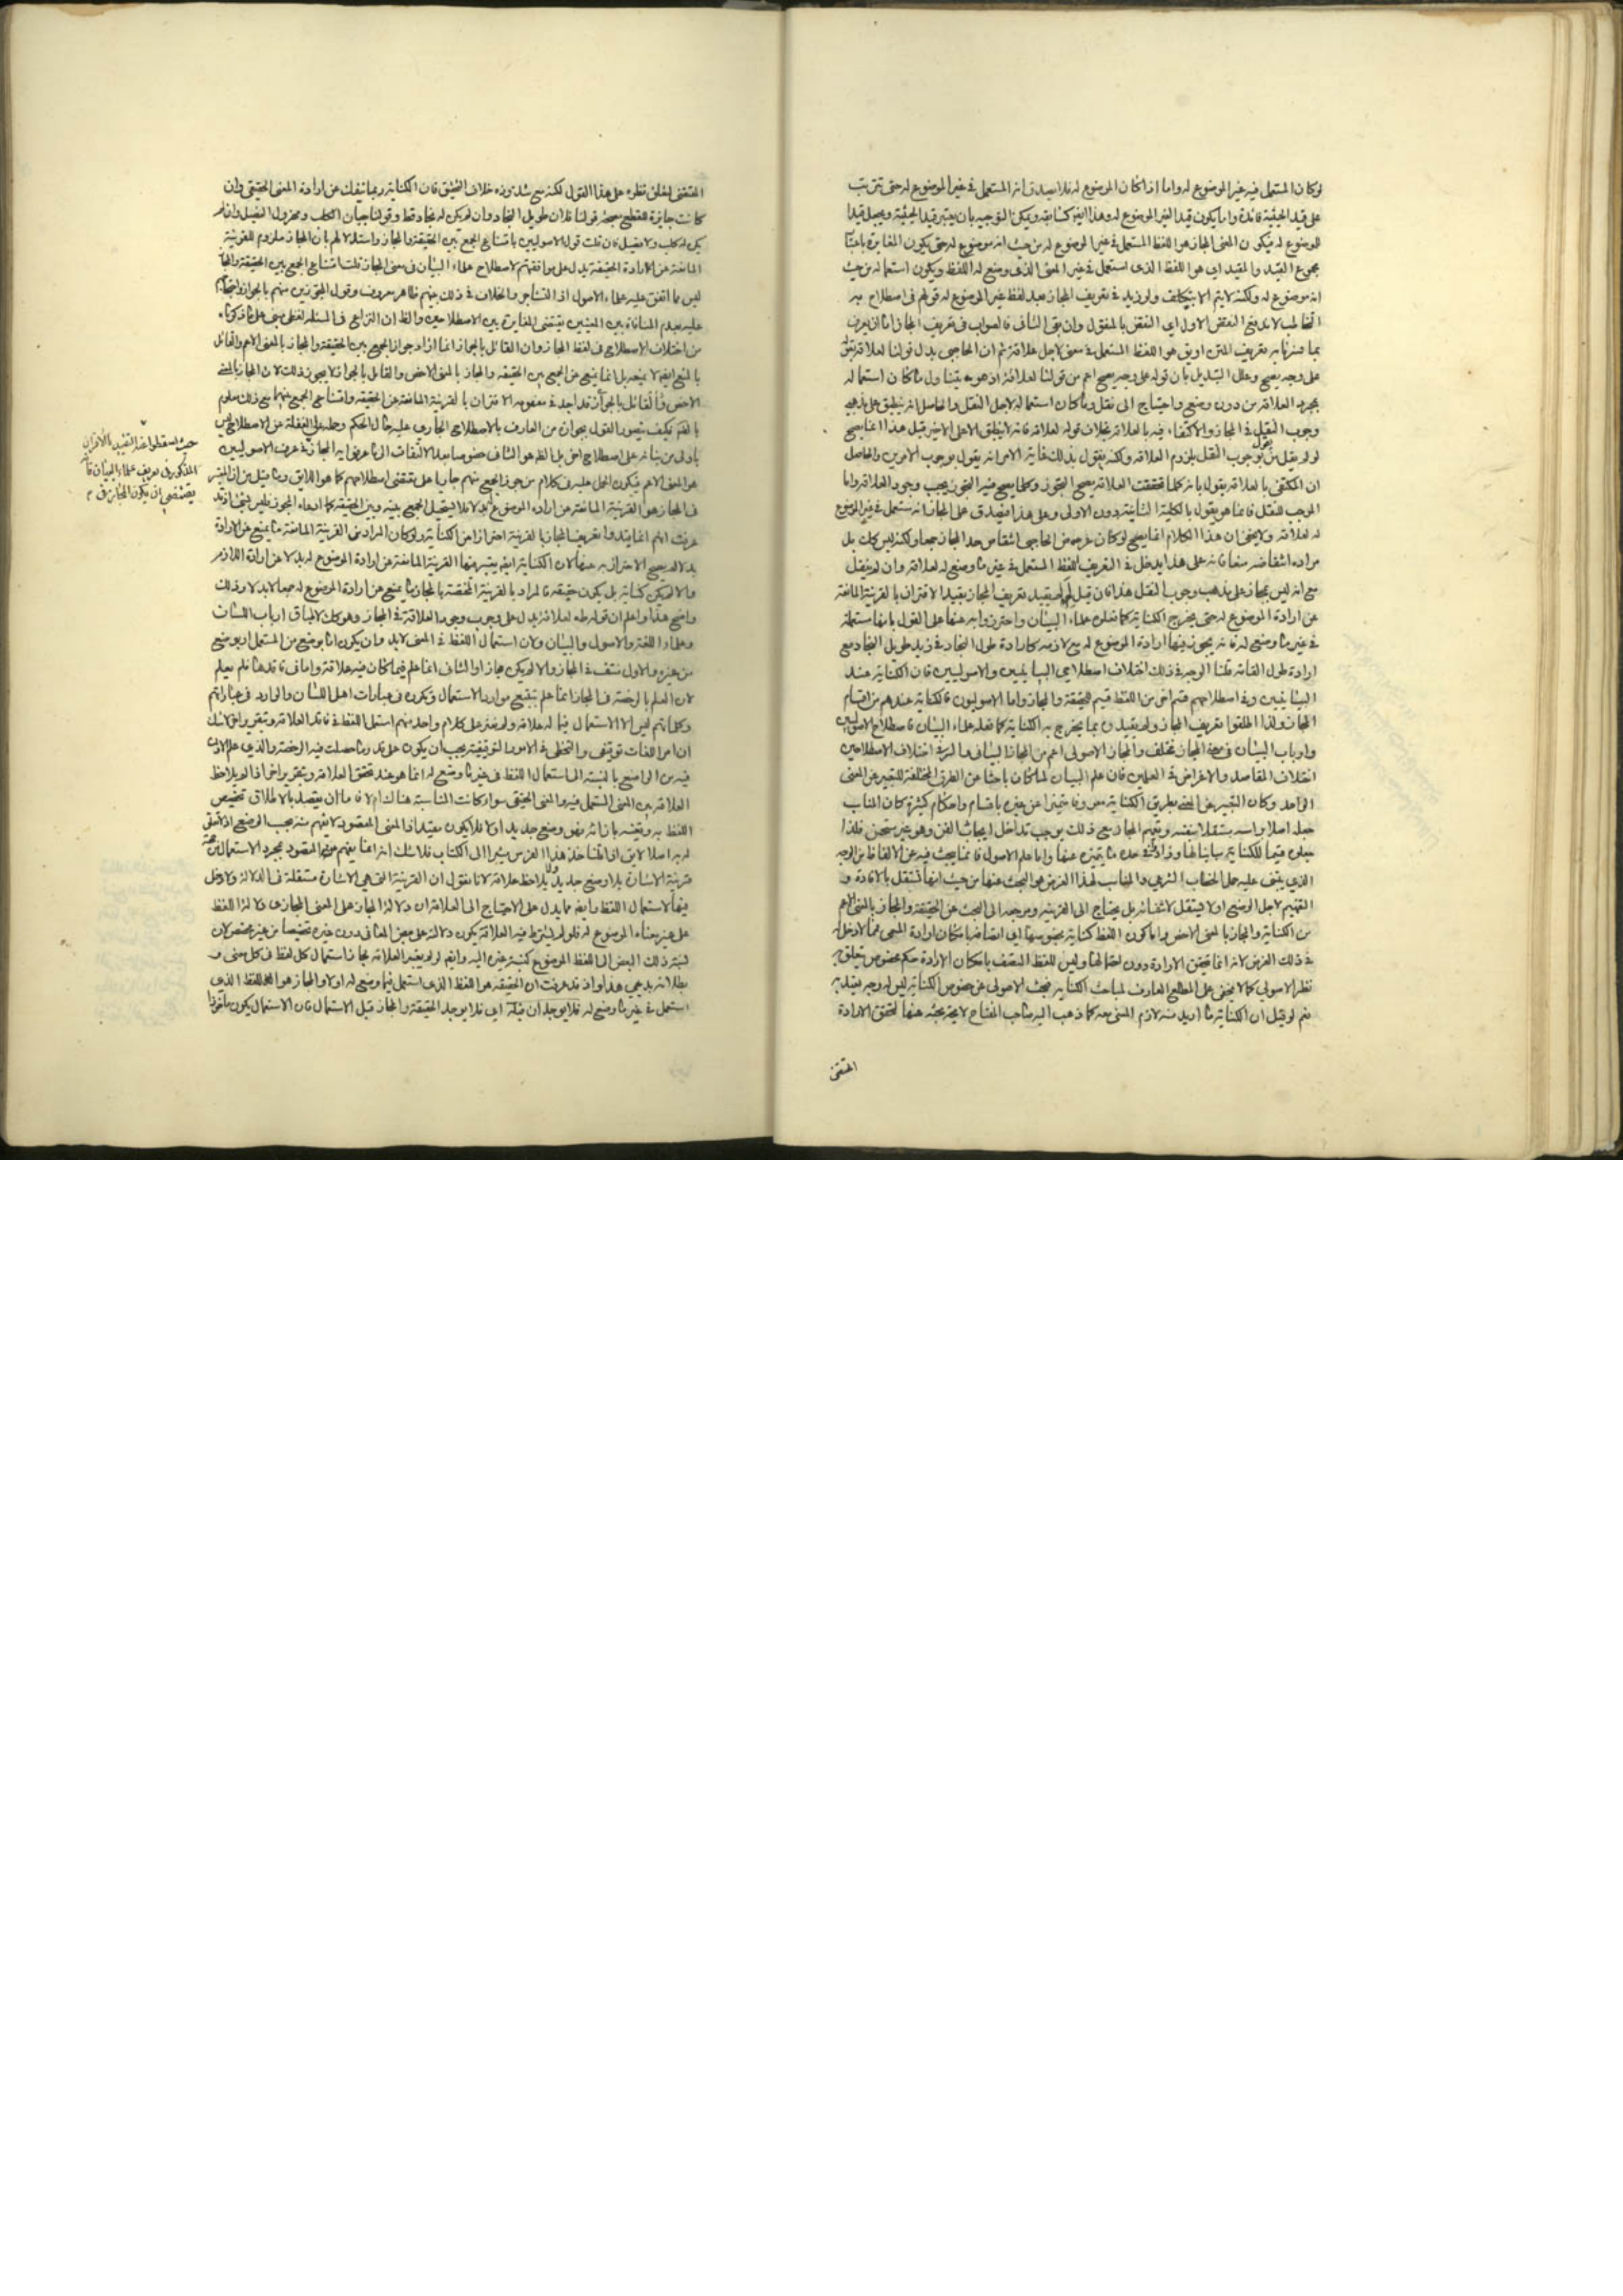 لو كان المستعمل فيه غير الموضوع له واما اذا كان الموضوع له فلا يصدق انه المستعمل في غير الموضوع له حتى يترتب
على قيد الحيثية فائدة واما يكون قيدا لغير الموضوع له وهذا ايض كسابقه ويمكن التوجيه بان يعتبر قيد الحيثية ويجعل قيدا
للموضوع له فيكون المعنى المجاز هو اللفظ المستعمل في غير الموضوع له من حيث انه موضوع له حتى يكون المغايرة باعتبار
مجموع القيد والمقيد اي هو اللفظ الذي استعمل في غير المعنى الذي وضع له اللفظ ويكون استعماله من حيث
انه موضوع له ولكنه لا يتم الا بتكلف ولو زيد في تعريف المجاز بعد لفظ غير الموضوع له قولهم في اصطلاح به
التخاطب لاندفع النقض الاول اي النقض بالمنقول وان بقي الثاني فالصواب في تعريف المجاز اما ان يعرف
بما فسرنا به تعريف المتن او يق هو اللفظ المستعمل في معنى لاجل علاقة ثم ان الحاجبي بدل قولنا لعلاقة بقوله
على وجه يصح وعلل التبديل بان قوله على وجه يصح اعم من قولنا لعلاقة اذ هو يتناول ما كان استعماله
بمجرد العلاقة من دون وضع واحتياج الى نقل وما كان استعماله لاجل النقل والحاصل انه ينطبق على مذهبي
وجوب النقل في المجاز والاكتفاء فيه بالعلاقة بخلاف قوله لعلاقة فانه لا ينطبق الا على الاخير قيل هذا انما يصح
لو لم يقل من يقول بوجوب النقل بلزوم العلاقة ولكنه يقول بذلك غاية الامر انه يقول بوجوب الامرين والحاصل
ان المكتفي بالعلاقة يقول بانه كلما تحققت العلاقة يصح التجوز وكلما يصح فيه التجوز يجب وجود العلاقة واما
الموجب للنقل فانما هو يقول بالكلية الثانية دون الاولى وعلى هذا فيصدق على المجاز انه مستعمل في غير الموضوع
له لعلاقة ولا يخفى ان هذا الكلام انما يصح لو كان غرض الحاجبي انتقاض حد المجاز جمعا ولكنه ليس كك بل
مراده انتقاضه منعا فانه على هذا يدخل في التعريف اللفظ المستعمل في غير ما وضع له لعلاقة وان لم ينقل
مع انه ليس بمجاز على مذهب وجوب النقل هذا فان قيل لم لم يقيد تعريف المجاز بقيد الاقتران بالقرينة المانعة
عن ارادة الموضوع له حتى يخرج الكناية كما فعله علماء البيان واحترزوا به عنها على القول بانها مستعملة
في غير ما وضع له فانه يجوز فيها ارادة الموضوع له مع لازمه كارادة طول النجاد في زيد طويل النجاد مع
ارادة طول القامة قلنا الوجه في ذلك اختلاف اصطلاحي البيانيين والاصوليين فان الكناية عند
البيانيين وفي اصطلاحهم قسم اخر من اللفظ قسيم للحقيقة والمجاز واما الاصوليون فالكناية عندهم من اقسام
المجاز ولذا اطلقوا تعريف المجاز ولم يقيدوه بما يخرج به الكناية كما فعله علماء البيان فاصطلاح الاصوليين
وارباب البيان في معنى المجاز مختلف والمجاز الاصولي اعم من المجاز البياني والسر في اختلاف الاصطلاحين
اختلاف المقاصد والاغراض في العلمين فان علم البيان لما كان باحثا عن الطرق المختلفة للتعبير عن المعنى
الواحد وكان التعبير عن المعنى بطريق الكناية متميزا عن غيره باقسام واحكام كثيرة كان المناسب
جعله اصلا براسه مستقلا بنفسه وتعميم المجاز مع ذلك يوجب تداخل ابحاث الفن وهو غير مستحسن فلذا
جعلوه قسيما للكناية مباينا لها وزادوا في حده ما يتميز عنها واما علم الاصول فانما يبحث فيه عن الالفاظ من الوجه
الذي يبتني عليه حمل الخطاب الشرعي والمناسب لهذا الغرض هو البحث عنها من حيث انها تستقل بالافادة و
التفهيم لاجل الوضع او لا يستقل لانتفائه بل يحتاج الى القرينة ومرجعه الى البحث عن الحقيقة والمجاز بالمعنى الاعم
من الكناية والمجاز بالمعنى الاخص واما كون اللفظ كناية بخصوصها اي اتصافه بامكان ارادة المعنى فمما لا دخل له
في ذلك الغرض لانه انما يتحقق الارادة دون احتمالها وليس للفظ المتصف بامكان الارادة حكم مخصوص يتعلق به
نظر الاصولي كما لا يخفى على المطلع العارف لمباحث الكناية فبحث الاصولي عن خصوص الكناية ليس له وجه يعتد به
نعم لو قيل ان الكناية ما اريد منه لازم المعنى معه كما ذهب اليه صاحب المفتاح لا يتجه بحثه عنها لتحقق الارادة
المقتضي
المقتضي لتعلق نظره على هذا القول لكنه مع شذوذه خلاف التحقيق فان الكناية ربما تنفك عن ارادة المعنى الحقيقي وان
كانت جايزة للقطع بصحة قولنا فلان طويل النجاد وان لم يكن له نجاد قط وقولنا جبان الكلب ومهزول الفصيل وان لم
يكن له كلب ولا فصيل فان قلت قول الاصوليين بامتناع الجمع بين الحقيقة والمجاز واستدلالهم بان المجاز ملزوم للقرينة
المانعة عن الارادة الحقيقة يدل على موافقتهم لاصطلاح علماء البيان في معنى المجاز قلت امتناع الجمع بين الحقيقة والمجاز
ليس ما اتفق عليه علماء الاصول اذ التشاجر والخلاف في ذلك بينهم ظاهر معروف وقول المجوزين منهم بالجواز واحتجاجهم
عليه بعدم المنافاة بين المعنيين يقتضي المغايرة بين الاصطلاحين والظ ان النزاع في المسئلة لفظي مبني على ما ذكرناه
من اختلاف الاصطلاح في لفظ المجاز وان القائل بالجواز انما اراد جواز الجمع بين الحقيقة والمجاز بالمعنى الاعم والقائل
بالمنع ايض لا يمنعه بل انما يمنع عن الجمع بين الحقيقة والمجاز بالمعنى الاخص والقايل بالجواز لا يجوز ذلك لان المجاز بالمعنى
الاخص والقائل بالجواز قد اخذ في مفهومه الاقتران بالقرينة المانعة عن الحقيقة وامتناع الجمع بينهما مع ذلك معلوم
فكيف يتصور القول بجوازه من العارف بالاصطلاح الجاري عليه حال الحكم وحمله على الغفلة عن الاصطلاح ليس
باولى من بنائه على اصطلاح اخر بل الظ هو الثاني خصوصا بعد الالتفات الى ما عرفوا به المجاز في عرف الاصوليين
حيث اسقطوا عنه التقييد بالاقتران
المذكور في تعريف علماء البيان فانه
يقتضي ان يكون المجاز في
هو المعنى الاعم فيكون الحمل عليه في كلام من جوز الجمع منهم جاريا على مقتضى اصطلاحهم كما هو اللايق وما قيل من ان المعتبر
في المجاز هو القرينة المانعة عن ارادة الموضوع له بدلا فلا يستحيل الجمع بينه وبين الحقيقة كما ادعاه المجوز فليس بشيء اذ قد
عرفت انهم انما قيدوا تعريف المجاز بالقرينة احترازا عن الكناية ولو كان المراد من القرينة المانعة ما يمنع عن الارادة
بدلا لم يصح الاحتراز به عنها لان الكناية ايض يعتبر فيها القرينة المانعة عن ارادة الموضوع له بدلا عن ارادة اللازم
والا لم يكن كناية بل يكون حقيقة فالمراد بالقرينة المختصة بالمجاز ما يمنع عن ارادة الموضوع له جمعا لا بدلا وذلك
واضح هذا واعلم ان قوله طه لعلاقة يدل على وجوب وجود العلاقة في المجاز وهو كك لاطباق ارباب اللسان
وعلماء اللغة والاصول والبيان ولان استعمال اللفظ في المعنى لابد وان يكون اما بوضع من المستعمل او بوضع
من غيره والاول منتف في المجاز والا لم يكن مجازا والثاني انما علم فيما كان فيه علاقة واما في فاقدها فلم يعلم
لان العلم بالرخصة في المجاز انما علم بتتبع موارد الاستعمال وتكرره في عبارات اهل اللسان والوارد في عباراتهم
وكلماتهم ليس الا الاستعمال فيما له علاقة ولم نعثر على كلام واحد منهم استعمل اللفظ في فاقد العلاقة وبتقرير اخر لا شك
ان امر اللغات توقيفي والتخطي في الامور التوقيفية يجب ان يكون على قدر ما حصلت فيه الرخصة والذي علم الاذن
فيه من الواضع بالنسبة الى استعمال اللفظ في غير ما وضع له انما هو عند تحقق العلاقة وبتقرير اخر اذا لم يلاحظ
العلاقة بين المعنى المستعمل فيه والمعنى الحقيقي سواء كانت المناسبة هناك ام لا فاما ان يقصد بالاطلاق تخصيص
اللفظ به وتعيينه بازائه فهو وضع جديد اولا فلا يكون مفيدا اذ المعنى المقصود لا يفهم منه بحسب الوضع اذ لا تعلق
له به اصلا لا يق اذا قلنا خذ هذا الفرس مشيرا الى الكتاب فلا شك انه انما يفهم منه المقصود بمجرد الاستعمال من جهة
قرينة الاشارة بلا وضع جديد ولا يلاحظ علاقة لانا نقول ان القرينة التي هي الاشارة مستقلة في الدلالة ولا دخل
فيها لاستعمال اللفظ وايض مما يدل على الاحتياج الى العلاقة ان دلالة المجاز على المعنى المجازي دلالة اللفظ
على غير معناه الموضوع له فلو لم يشترط فيه العلاقة يكون دلالته على بعض المعاني دون غيره تخصيصا من غير مخصص لان
نسبة ذلك البعض الى اللفظ الموضوع كنسبة غيره اليه وايض لو لم يعتبر العلاقة لجاز استعمال كل لفظ في كل معنى و
بطلانه بديهي هذا واذ قد عرفت ان الحقيقة هو اللفظ الذي استعمل فيما وضع له اولا والمجاز هو اللفظ الذي
استعمل في غير ما وضع له فلا يوجدان قبله اي فلا يوجد الحقيقة والمجاز قبل الاستعمال فان الاستعمال يكون مأخوذا